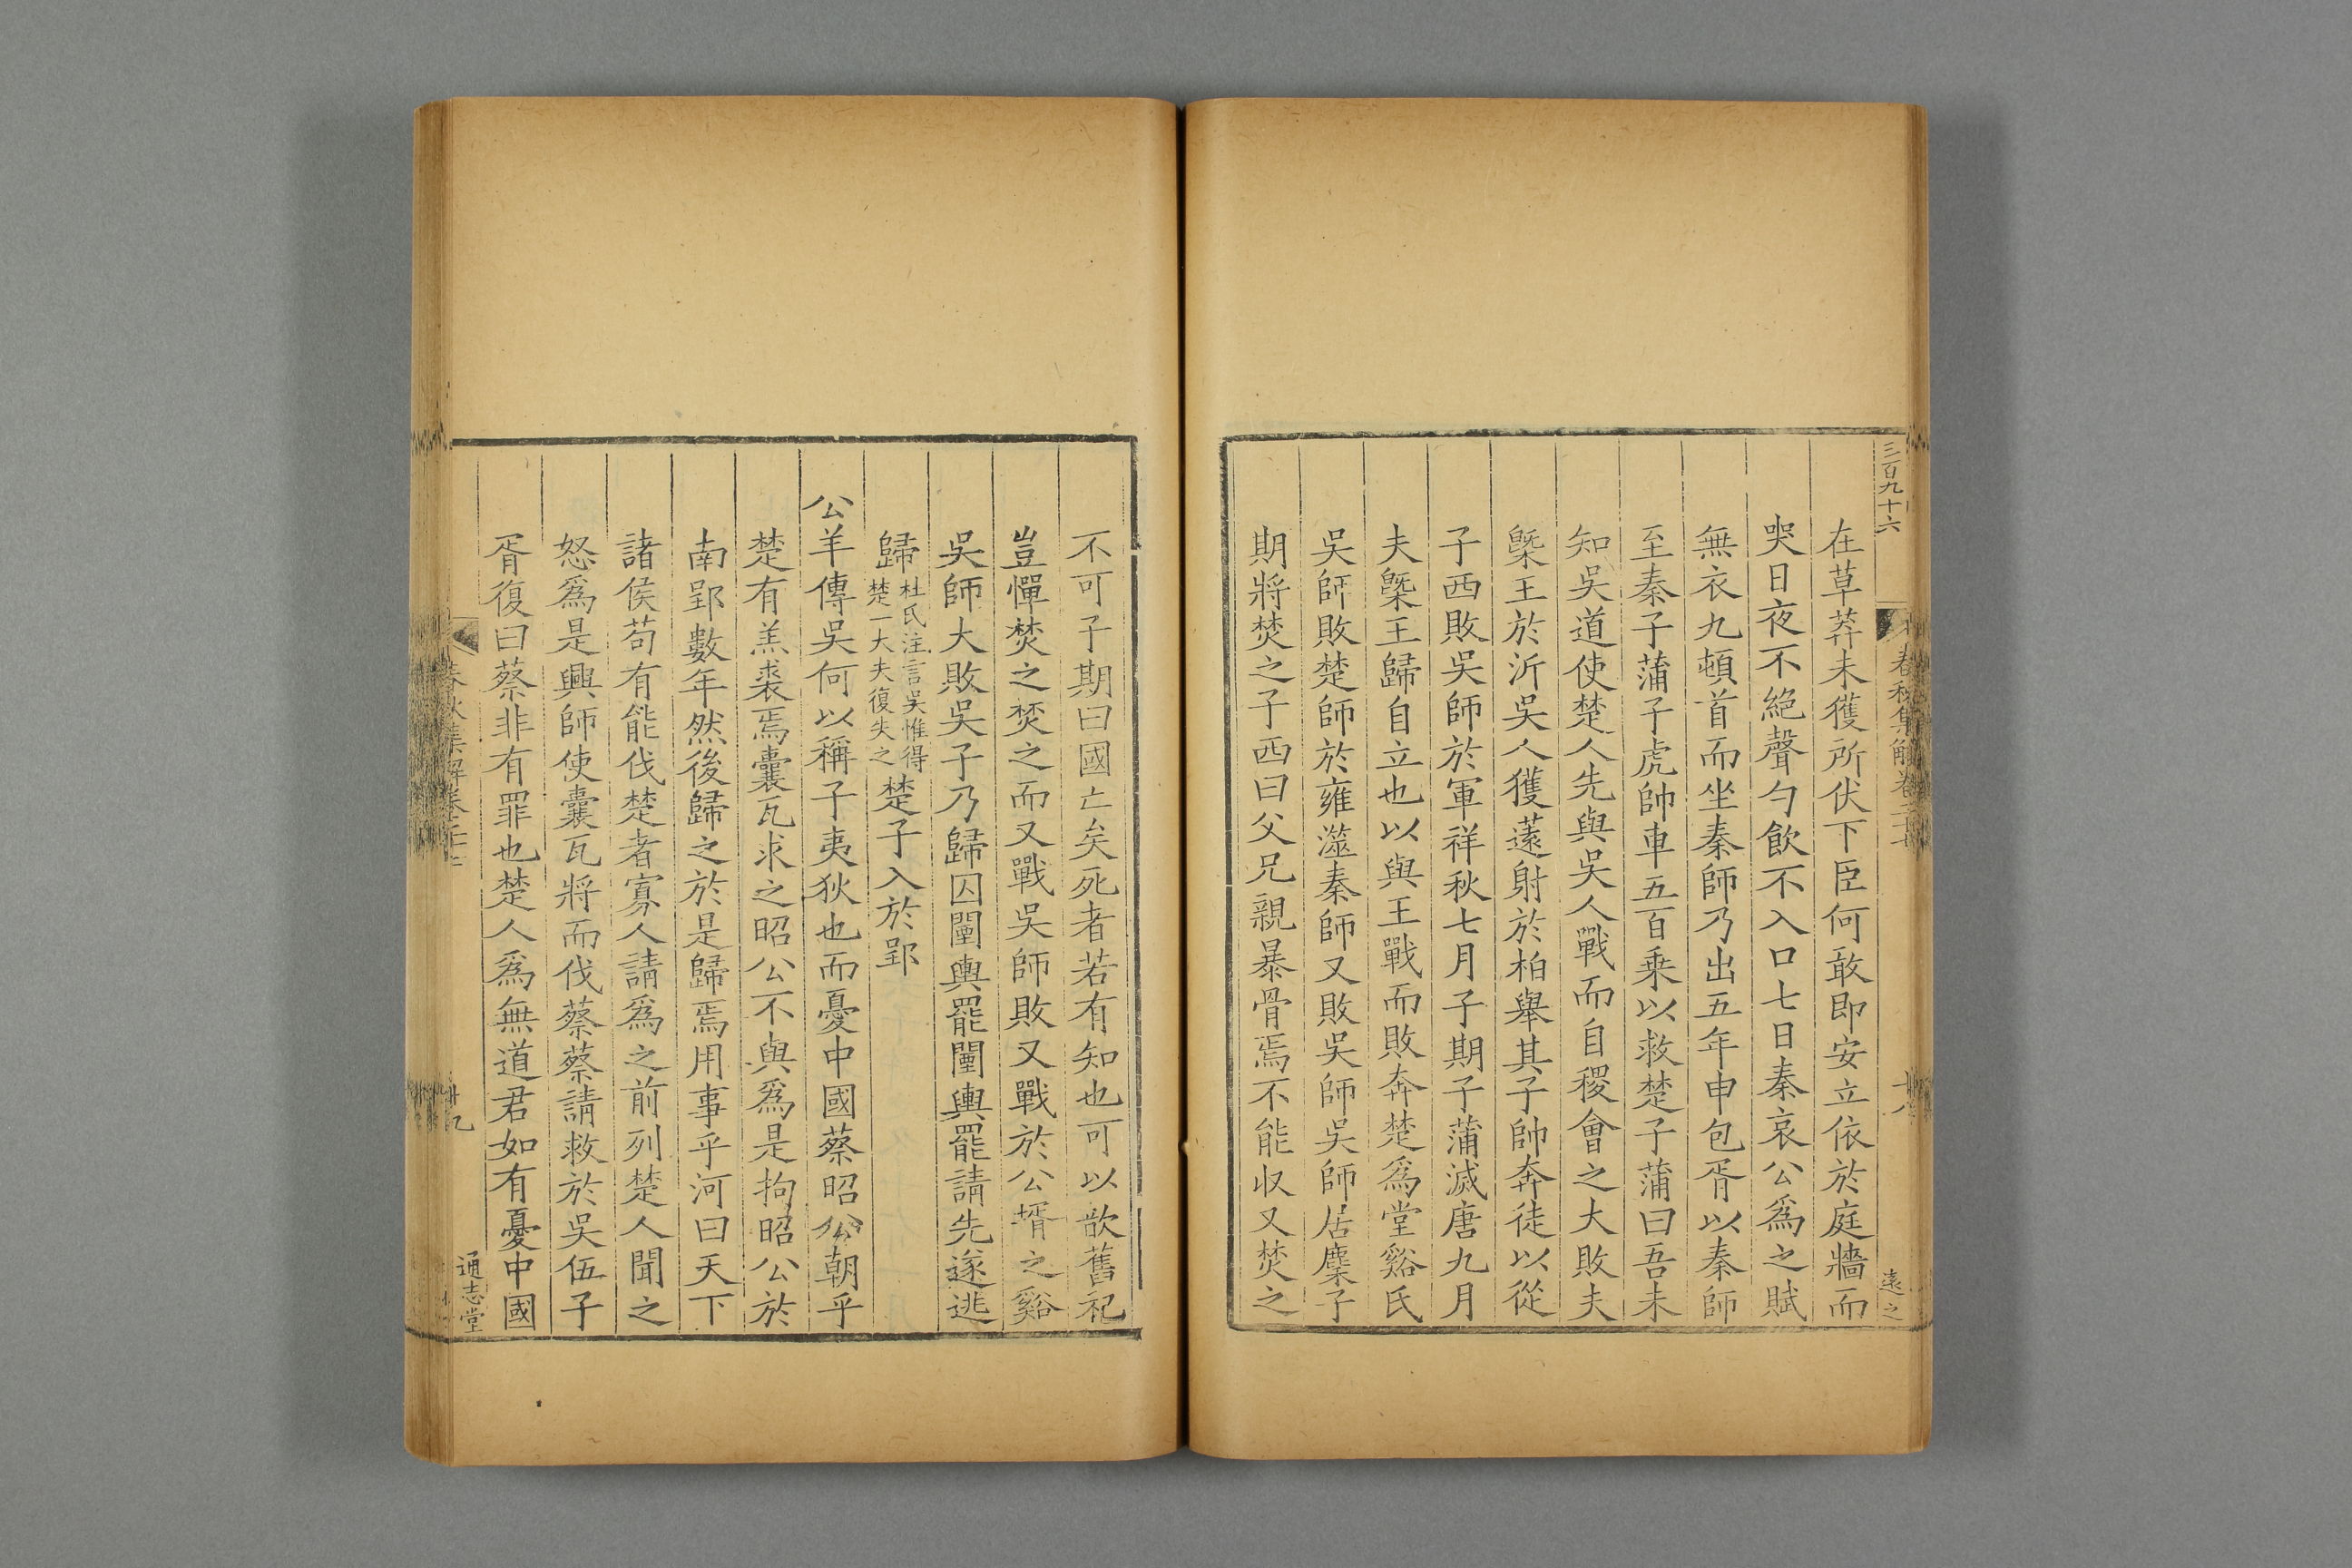 三百九十六
春秋集解卷二十
遠之
在草莽未獲所伏下臣何敢即安立依於庭牆而
哭日夜不絕聲勺飲不入口七日秦哀公為之賦
無衣九頓首而坐秦師乃出五年申包胥以秦師
至秦子蒲子虎帥車五百乗以救楚子蒲曰吾未
知吳道使楚人先與吳人戰而自稷會之大敗夫
槩王於沂吳人獲薳射於柏舉其子帥奔徒以從
子西敗吳師於軍祥秋七月子期子蒲滅唐九月
夫槩王歸自立也以與王戰而敗奔楚爲堂谿氏
吳師敗楚師於雍澨秦師又敗吳師吳師居麇子
期將焚之子西曰父兄親暴骨焉不能収又焚之
不可子期曰國亡矣死者若有知也可以歆舊祀
豈憚焚之焚之而又戰吳師敗又戰於公壻之谿
吳師大敗吳子乃歸囚闉輿罷闉輿罷請先遂逃
歸杜氏注言吳惟得楚一大夫復失之楚子入於郢
公羊傳吳何以稱子夷狄也而憂中國蔡昭公朝乎
楚有羔裘焉囊瓦求之昭公不與爲是拘昭公於
南郢數年然後歸之於是歸焉用事乎河曰天下
諸侯苟有能伐楚者寡人請爲之前列楚人聞之
怒爲是興師使囊瓦將而伐蔡蔡請救於吳伍子
胥復曰蔡非有罪也楚人爲無道君如有憂中國
春秋集解卷二十
通志堂